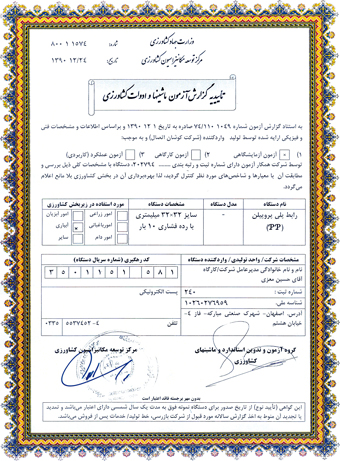 وزارت جهاد کشاورزی
مرکز توسعه مکانیزاسیون کشاورزی
شماره: ۸۰۰۱۱۵۷۴
تاریخ: ۱۳۹۰/۱۲/۲۴
تأییدیه گزارش آزمون ماشینها و ادوات کشاورزی
به استناد گزارش آزمون شماره ۷۴/۱۱۰۱۰۴۹ صادره به تاریخ ۱۳۹۰ ۱۲ ۱ و براساس اطلاعات و مشخصات فنی
فیزیکی ارایه شده توسط تولید واردکننده (شرکت کوشان اتصال) و به موجب:
۱) آزمون آزمایشگاهی ۲) آزمون کارگاهی ۳) آزمون عملکرد (کاربردی)
توسط شرکت همکار آزمون دارای شماره ثبت و رتبه بندی ۲۰۳۷۹۴، دستگاه با مشخصات کلی ذیل بررسی و
مطابقت آن با معیارها و شاخص‌های مورد نظر کنترل گردید، لذا بهره‌برداری آن در بخش کشاورزی بلا مانع اعلام
می‌گردد.
نام دستگاه
مدل دستگاه
مشخصات دستگاه
مورد استفاده در زیربخش کشاورزی
رابط پلی پروپیلن
(PP)
-
سایز ۳۲×۳۲ میلیمتری
با رده فشاری ۱۰ بار
امور زراعی
امور باغبانی
امور دام
امور آبزیان
آبیاری
سایر
مشخصات شرکت/ واحد تولیدی/ واردکننده دستگاه
کد رهگیری (شماره سریال دستگاه)
نام و نام خانوادگی مدیرعامل شرکت/کارگاه
آقای حسین معزی
۳۵۰۱۱۵۱۵۸۱
شماره ثبت: ۲۴۰
پست الکترونیکی
شناسه ملی: ۱۰۲۶۰۲۷۶۹۵۹
آدرس: اصفهان- شهرک صنعتی مبارکه- فاز ۴-
خیابان هشتم
تلفن
۰۳۳۵ ۵۵۳۷۴۵۲-۴
گروه آزمون و تدوین استاندارد و ماشینهای
کشاورزی
مرکز توسعه مکانیزاسیون کشاورزی
بدون مهر برجسته فاقد اعتبار است
این گواهی (تأیید نوع) از تاریخ صدور برای دستگاه نمونه فوق به مدت یک سال شمسی دارای اعتبار می‌باشد و تمدید
یا تجدید آن منوط به اخذ گزارش سالانه مورد قبول از شرکت بازرسی، خط تولید/ خدمات پس از فروش می‌باشد.